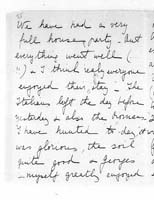 We have had a very
full house party - but
everything went well (
") & I think really everyone
enjoyed their stay - The
Italians left the day before
yesterday & also the
I have hunted to-day, it
was glorious, the soil
quite good & Georges
- myself greatly enjoyed